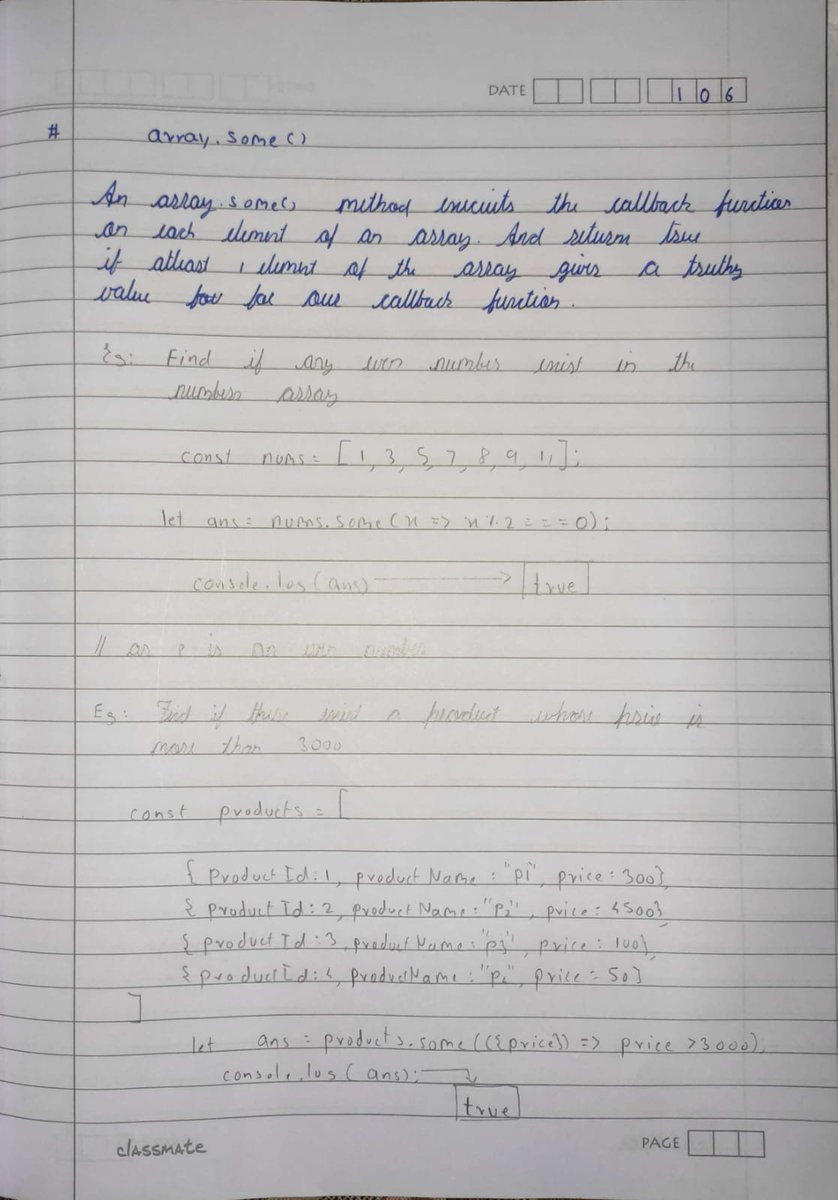 DATE 106
# array.some()
An array.some() method execuits the callback function
on each element of an array. And return true
if atleast 1 element of the array gives a truthy
value for for our callback function.
Eg: Find if any even number exist in the
numbers array
const nums = [1, 3, 5, 7, 8, 9, 11];
let ans = nums.some(x => x % 2 === 0);
console.log(ans) → true
// as 8 is an even number
Eg: Find if there exist a product whose price is
more than 3000
const products = [
{ ProductId: 1, productName : "p1", price : 300},
{ productId : 2, productName : "P2", price : 4500},
{ productId : 3, productName : "p3", price : 100},
{ productId : 4, productName : "p4", price = 50}
]
let ans = products.some(({price}) => price > 3000),
console.log(ans);
true
classmate PAGE